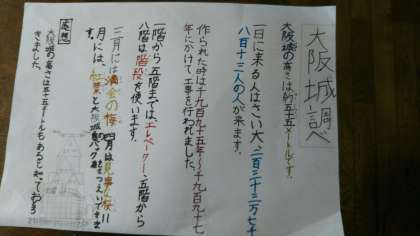 大阪城調べ
大阪城の高さは約五十五メートルです。
一日に来る人はさい大、二百三十三万七千
八百十三人の人が来ます。
作られた時は千九百九十五年〜千九百九十七
年にかけて工事を行われました。
一階から五階までは、エレベーター、五階から
八階は階段を使います。
三月には満会の梅、四月は見事な桜!!
月には、紅葉と大阪城
感想
大阪城の高さは五十五メートルもあると知っておどろ
きました。